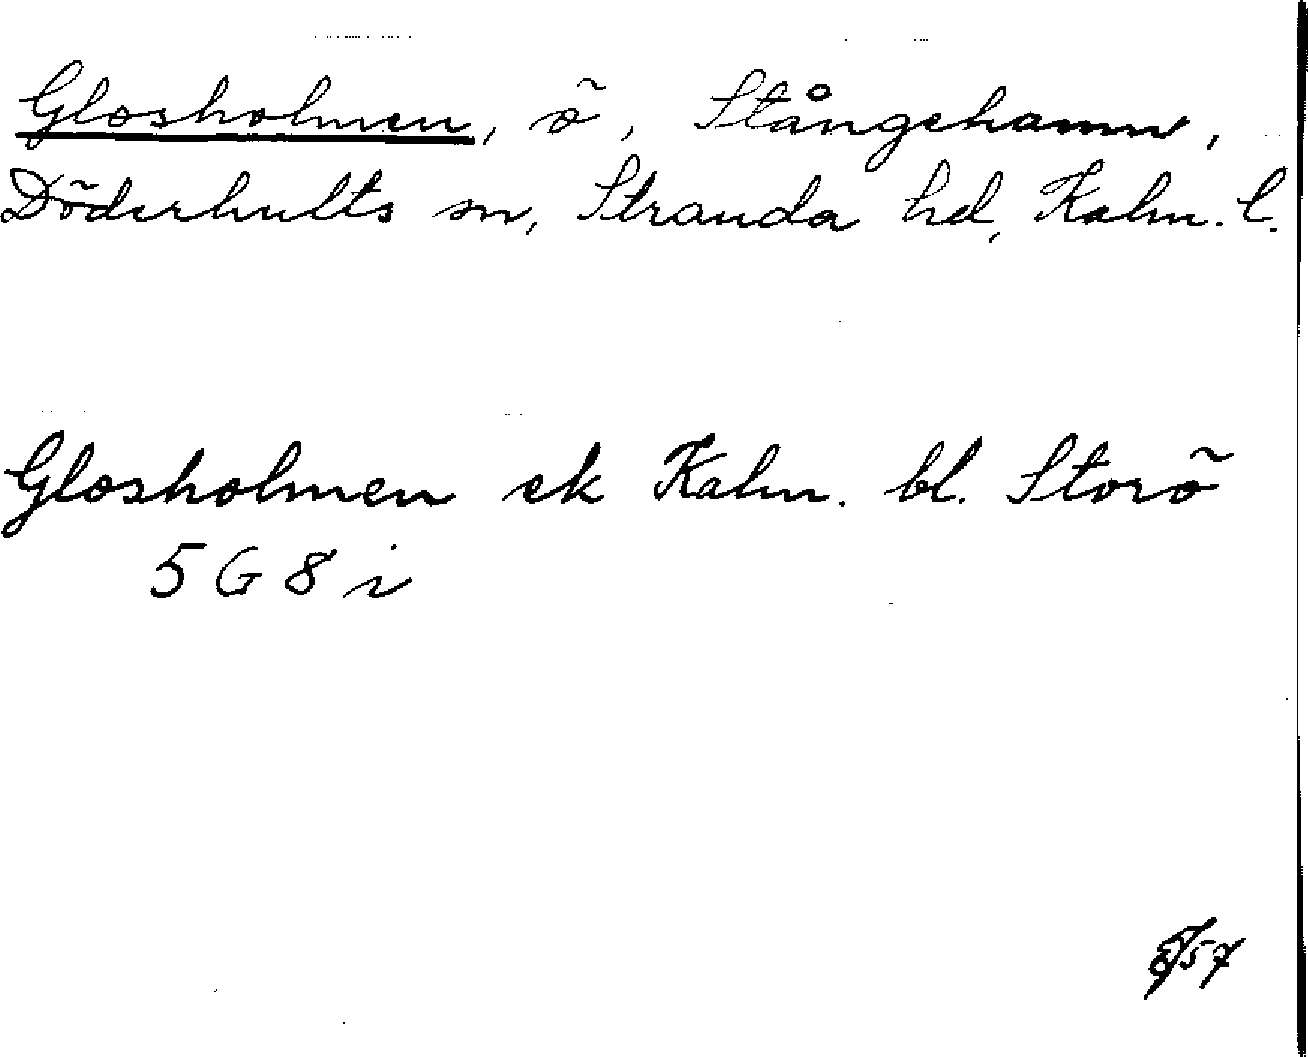 Glosholmen, ö, Stångehamn,
Döderhults sn, Stranda hd, Kalm. l.
Glosholmen ek Kalm. bl. Storö
5 G 8 i